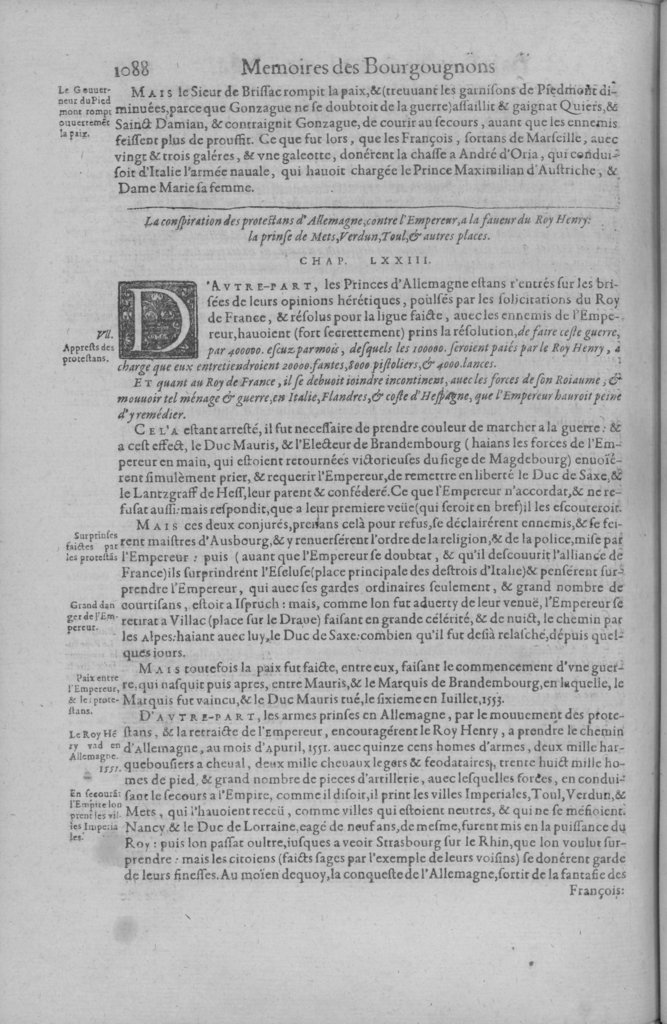 1088 Memoires des Bourgougnons
Le Gouuer-
neur du Pied
mont rompt
ouuertemēt
la paix.
MAIS le Sieur de Brissac rompit la paix,& (treuuant les garnisons de Piedmont di-
minuées, parce que Gonzague ne se doubtoit de la guerre) assaillit & gaignat Quiers,&
Sainct Damian, & contraignit Gonzague, de courir au secours, auant que les ennemis
feissent plus de prouffit. Ce que fut lors, que les François, sortans de Marseille, auec
vingt & trois galéres, & vne galeotte, donérent la chasse a André d'Oria, qui condui-
soit d'Italie l'armée nauale, qui hauoit chargée le Prince Maximilian d'Austriche, &
Dame Marie sa femme.
La conspiration des protestans d'Allemagne, contre l'Empereur, a la faueur du Roy Henry:
la prinse de Mets, Verdun, Toul, & autres places.
CHAP. LXXIII.
D'AVTRE-PART, les Princes d'Allemagne estans r'entrés sur les bri-
sées de leurs opinions hérétiques, poulsés par les solicitations du Roy
de France, & résolus pour la ligue faicte, auec les ennemis de l'Empe-
reur, hauoient (fort secrettement) prins la résolution, de faire ceste guerre,
par 400000. escuz par mois, desquels les 100000. seroient paiés par le Roy Henry, a
charge que eux entretiendroient 20000. fantes, 8000 pistoliers, & 4000. lances.
VII.
Apprests des
protestans.
ET quant au Roy de France, il se debuoit ioindre incontinent, auec les forces de son Roiaume, &
mouuoir tel ménage & guerre, en Italie, Flandres, & coste d'Hespagne, que l'Empereur hauroit peine
d'y remédier.
CELA estant arresté, il fut necessaire de prendre couleur de marcher a la guerre: &
a cest effect, le Duc Mauris, & l'Electeur de Brandembourg (haians les forces de l'Em-
pereur en main, qui estoient retournées victorieuses du siege de Magdebourg) enuoïé-
rent simulèment prier, & requerir l'Empereur, de remettre en liberté le Duc de Saxe, &
le Lantzgraff de Hess, leur parent & conféderé. Ce que l'Empereur n'accordat, & ne re-
fusat aussi: mais respondit, que a leur premiere veüe (qui seroit en bref) il les escouteroit.
MAIS ces deux conjurés, prenans celà pour refus, se déclairérent ennemis, & se fei-
rent maistres d'Ausbourg, & y renuersérent l'ordre de la religion, & de la police, mise par
l'Empereur: puis (auant que l'Empereur se doubtat, & qu'il descouurit l'alliance de
France) ils surprindrent l'Eseluse (place principale des destrois d'Italie) & pensérent sur-
prendre l'Empereur, qui auec ses gardes ordinaires seulement, & grand nombre de
courtisans, estoit a Ispruch: mais, comme lon fut aduerty de leur venuë, l'Empereur se
retirat a Villac (place sur le Draue) faisant en grande célérité, & de nuict, le chemin par
les Alpes: haiant auec luy, le Duc de Saxe: combien qu'il fut desià relasché, dépuis quel-
ques iours.
Surprinses
faictes par
les protestās
Grand dan
ger de l'Em-
pereur.
MAIS toutefois la paix fut faicte, entre eux, faisant le commencement d'vne guer-
re, qui nasquit puis apres, entre Mauris, & le Marquis de Brandembourg, en laquelle, le
Marquis fut vaincu, & le Duc Mauris tué, le sixieme en Iuillet, 1553.
Paix entre
l'Empereur,
& les prote-
stans.
D'AVTRE-PART, les armes prinses en Allemagne, par le mouuement des prote-
stans, & la retraicte de l'Empereur, encouragérent le Roy Henry, a prendre le chemin
d'Allemagne, au mois d'Apuril, 1551. auec quinze cens homes d'armes, deux mille har-
quebousiers a cheual, deux mille cheuaux legers & feodataires, trente huict mille ho-
mes de pied, & grand nombre de pieces d'artillerie, auec lesquelles forces, en condui-
sant le secours a l'Empire, comme il disoit, il print les villes Imperiales, Toul, Verdun, &
Mets, qui l'hauoient receü, comme villes qui estoient neutres, & qui ne se méfioient.
Nancy & le Duc de Lorraine, eagé de neuf ans, de mesme, furent mis en la puissance du
Roy: puis lon passat oultre, iusques a veoir Strasbourg sur le Rhin, que lon voulut sur-
prendre: mais les citoiens (faicts sages par l'exemple de leurs voisins) se donérent garde
de leurs finesses. Au moïen dequoy, la conqueste de l'Allemagne, sortit de la fantasie des
Le Roy Hé
ry vad en
Allemagne.
1551.
En secourāt
l'Empire lon
prent les vil-
les Imperia
les.
François: